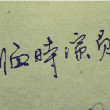 臨時演員